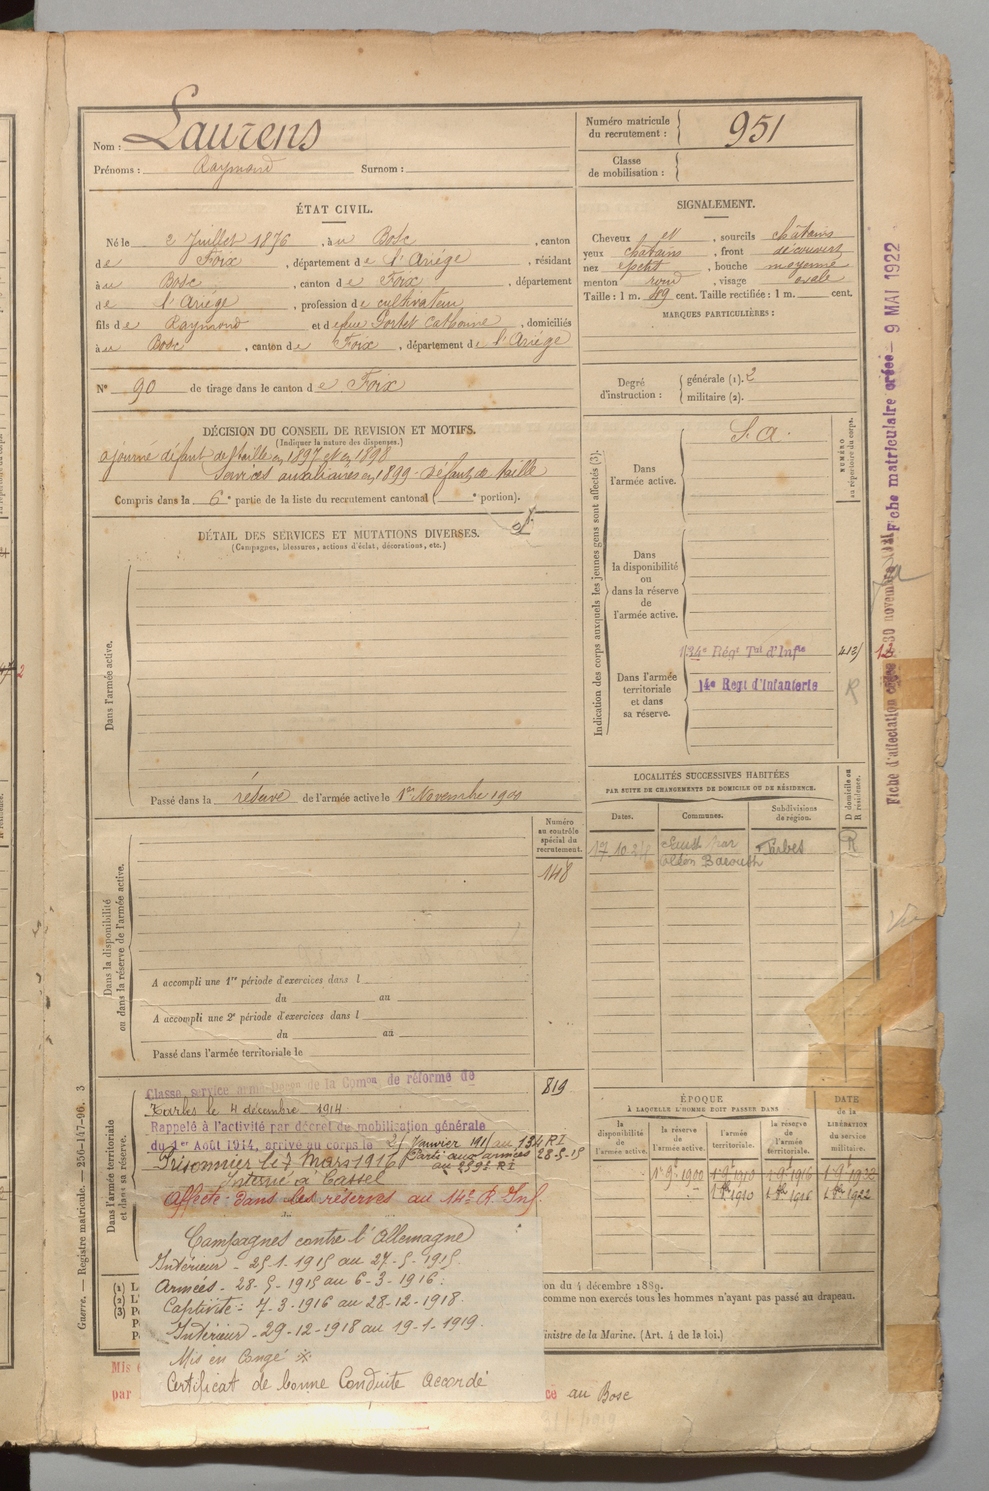 Nom : Laurens
Prénoms : Raymond Surnom :
Numéro matricule
du recrutement : 951
Classe
de mobilisation :
ÉTAT CIVIL.
Né le 2 Juillet 1876, à u Bosc, canton
de Foix, département de l'Ariège, résidant
à u Bosc, canton de Foix, département
de l'Ariège, profession de cultivateur
fils de Raymond et de feue Portet Catherine, domiciliés
à u Bosc, canton de Foix, département de l'Ariège
N° 90 de tirage dans le canton de Foix
SIGNALEMENT.
Cheveux et, sourcils châtains
yeux chatains, front découvert
nez petit, bouche moyenne
menton rond, visage ovale
Taille : 1 m. cent. Taille rectifiée : 1 m. cent.
MARQUES PARTICULIÈRES :
Degré
d'instruction :
générale (1). 2
militaire (2).
DÉCISION DU CONSEIL DE REVISION ET MOTIFS.
(Indiquer la nature des dispenses.)
ajourné défaut de taille en 1897 et en 1898
Services auxiliaires en 1899 - Défaut de taille
Compris dans la 6e partie de la liste du recrutement cantonal ( e portion).
DÉTAIL DES SERVICES ET MUTATIONS DIVERSES.
(Campagnes, blessures, actions d'éclat, décorations, etc.)
Dans l'armée active.
Passé dans la réserve de l'armée active le 1er Novembre 1900
Indication des corps auxquels les jeunes gens sont affectés (3).
NUMÉRO
au répertoire du corps.
Dans
l'armée active.
S. A.
Dans
la disponibilité
ou
dans la réserve
de
l'armée active.
Dans l'armée
territoriale
et dans
sa réserve.
134e Régt Tal d'Infie
14e Regt d'Infanterie
R
Fiche d'affectation créée 30 novembre Fiche matriculaire créée - 9 MAI 1922
LOCALITÉS SUCCESSIVES HABITÉES
PAR SUITE DE CHANGEMENTS DE DOMICILE OU DE RÉSIDENCE.
Dates.
Communes.
Subdivisions
de région.
D domicile ou
R résidence.
17 10 par Tarbes R
Numéro
au contrôle
spécial du
recrutement.
148
Dans la disponibilité
ou dans la réserve de l'armée active.
A accompli une 1re période d'exercices dans l
du au
A accompli une 2e période d'exercices dans l
du au
Passé dans l'armée territoriale le
Dans l'armée territoriale
et dans sa réserve.
Classé service armé de la Comon de réforme de
Tarbes le 4 décembre 1914
819
Rappelé à l'activité par décret de mobilisation générale
du 1er Août 1914, arrivé au corps le 25 Janvier 1915 au 134 RI
Parti aux armées 28-5-15
Prisonnier le 7 Mars 1916
Interné à Cassel
Affecté dans les réserves au 14e R. Inf.
Campagnes contre l'Allemagne
Intérieur - 25-1-1915 au 27-5-1915.
Armées - 28-5-1915 au 6-3-1916.
Captivité : 7-3-1916 au 28-12-1918.
Intérieur - 29-12-1918 au 19-1-1919.
Mis en Congé
Certificat de bonne Conduite accordé
ÉPOQUE
À LAQUELLE L'HOMME DOIT PASSER DANS
la
disponibilité
de l'armée
active.
la réserve
de
l'armée active.
l'armée
territoriale.
la réserve
de
l'armée
territoriale.
DATE
de la
LIBÉRATION
du service
militaire.
on du 4 décembre 1889.
comme non exercés tous les hommes n'ayant pas passé au drapeau.
inistre de la Marine. (Art. 4 de la loi.)
(1)
(2)
(3)
MIs
par
au Bosc
Guerre. — Registre matricule. — 256-147-96. 3